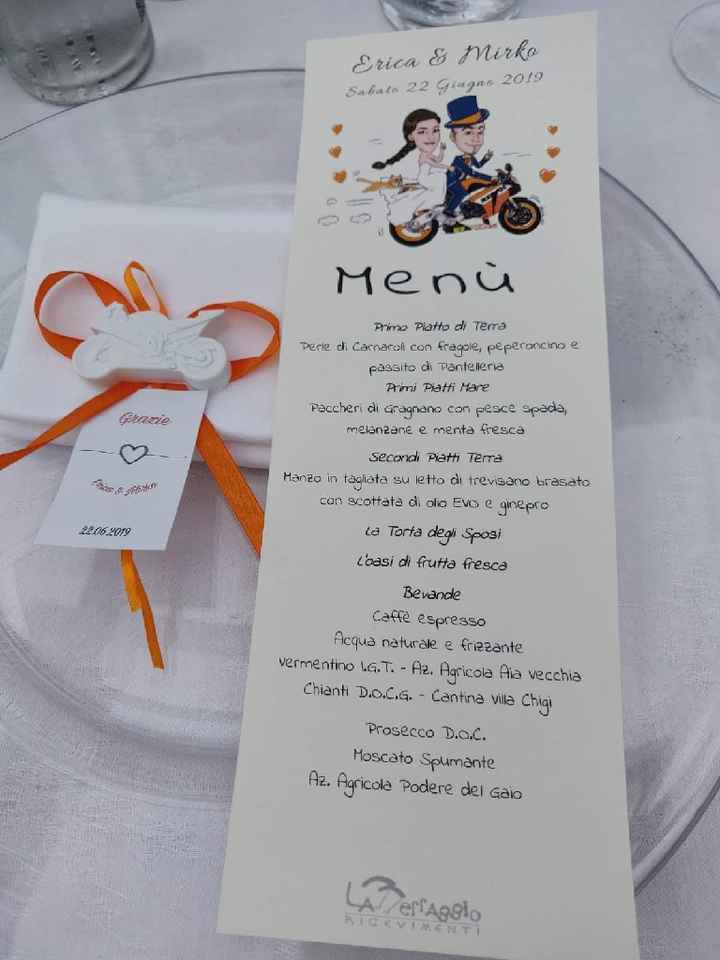 Erica & Mirko
Sabato 22 Giugno 2019
Menù
Primo Piatto di Terra
Perle di Carnaroli con fragole, peperoncino e
passito di Pantelleria
Primi Piatti Mare
Paccheri di Gragnano con pesce spada,
melanzane e menta fresca
Secondi Piatti Terra
Manzo in tagliata su letto di trevisano brasato
con scottata di olio Evo e ginepro
La Torta degli Sposi
L'oasi di frutta fresca
Bevande
Caffè espresso
Acqua naturale e frizzante
Vermentino I.G.T. - Az. Agricola Aia Vecchia
Chianti D.O.C.G. - Cantina Villa Chigi
Prosecco D.O.C.
Moscato Spumante
Az. Agricola Podere del Gaio
RICEVIMENTI
Grazie
22.06.2019